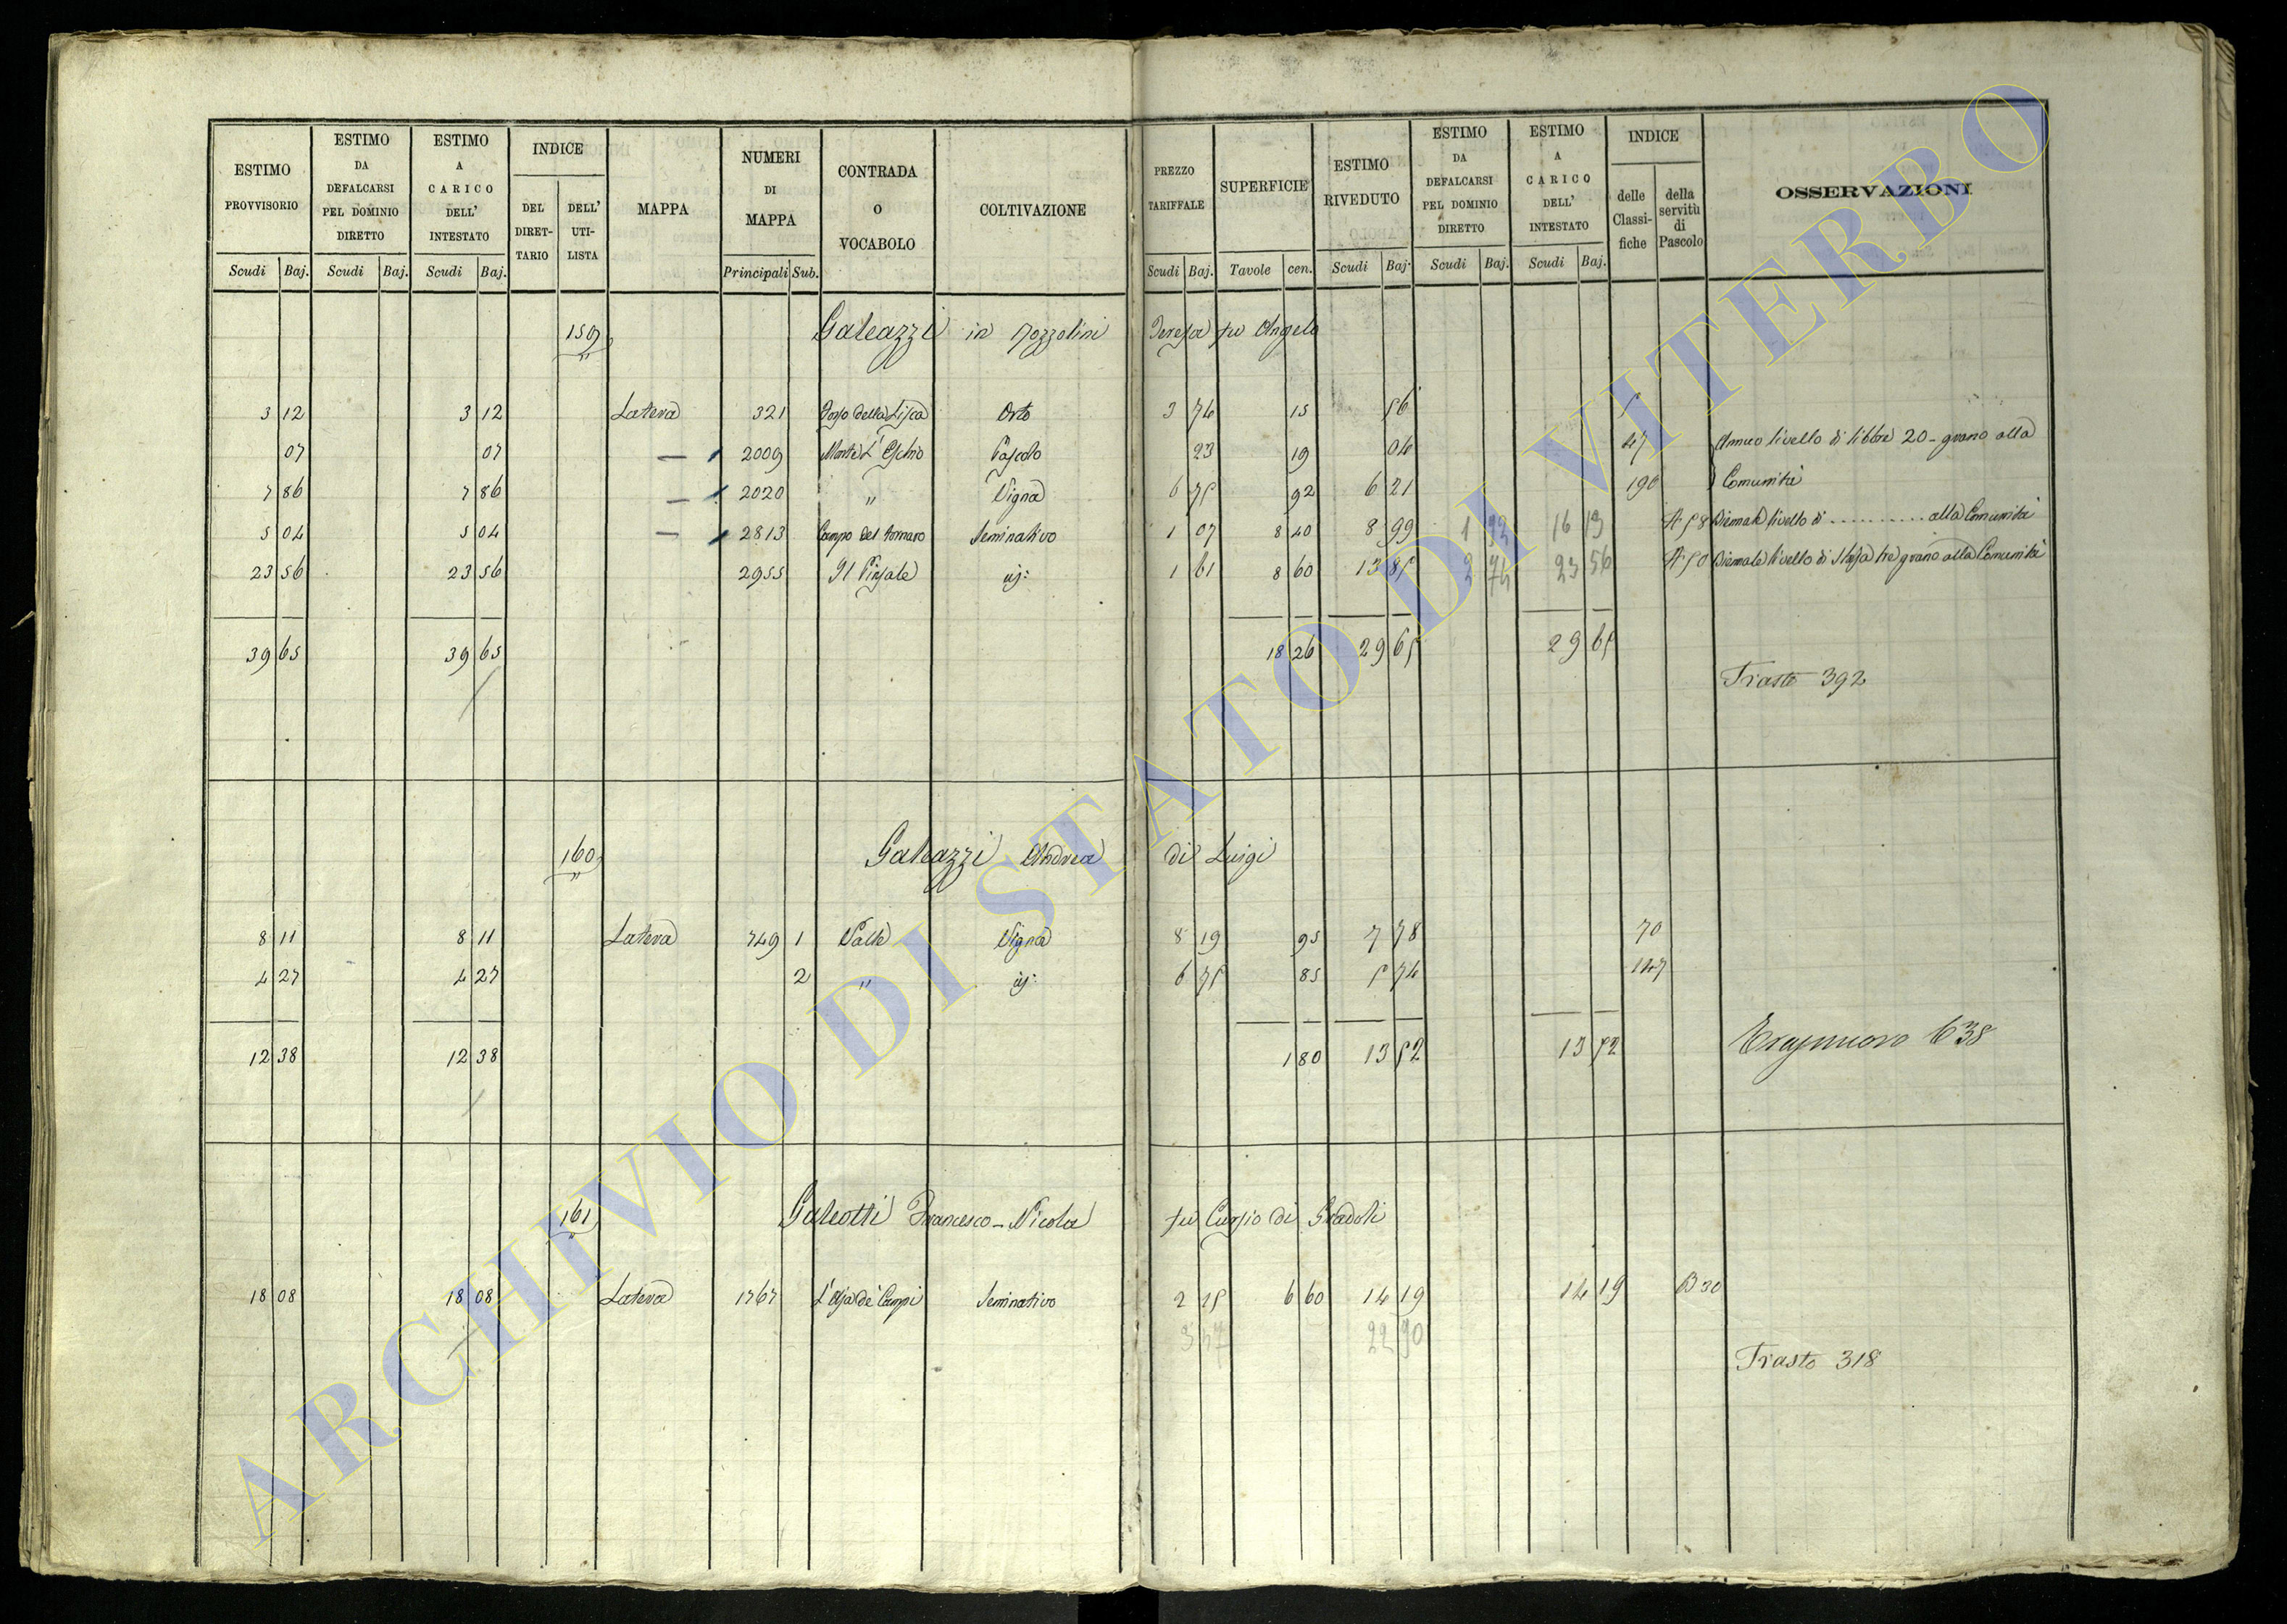 ESTIMO PROVVISORIO Scudi Baj. ESTIMO DA DEFALCARSI PEL DOMINIO DIRETTO Scudi Baj. ESTIMO A CARICO DELL' INTESTATO Scudi Baj. INDICE DEL DIRET-TARIO DELL' UTI-LISTA MAPPA NUMERI DI MAPPA Principali Sub. CONTRADA O VOCABOLO COLTIVAZIONE PREZZO TARIFFALE Scudi Baj. SUPERFICIE Tavole cen. ESTIMO RIVEDUTO Scudi Baj. ESTIMO DA DEFALCARSI PEL DOMINIO DIRETTO Scudi Baj. ESTIMO A CARICO DELL' INTESTATO Scudi Baj. INDICE delle Classi-fiche della servitù di Pascolo OSSERVAZIONI
159 Galeazzi in Pozzolini Teresa fu Angelo
3 12 3 12 Latera 321 Fosso della Lisca Orto 3 74 15 56 5
07 07 — 2009 Pascolo 23 19 04 47 Annuo livello di libbre 20 - grano alla
7 86 7 86 — 2020 " Vigna 6 75 92 6 21 190 Comunità
5 04 5 04 — 2813 Campo del tornaro Seminativo 1 07 8 40 8 99 1 92 16 19 A 58 Biennale livello di ........... alla Comunità
23 56 23 56 2955 Il Pinzale id: 1 61 8 60 13 85 2 74 23 56 A 50 Biennale livello di Staja tre grano alla Comunità
39 65 39 65 18 26 29 65 29 65
Trasto 392
160 Galeazzi Andrea di Luigi
8 11 8 11 Latera 749 1 Valle Vigna 8 19 95 7 78 70
4 27 4 27 2 " id: 6 75 85 5 74 147
12 38 12 38 1 80 13 52 13 52
638
161 Galeotti Francesco - Nicola fu Curzio di Gradoli
18 08 18 08 Latera 1767 L'Aja de' Campi Seminativo 2 15 6 60 14 19 14 19 B 30
3 47 22 90
Trasto 318
ARCHIVIO DI STATO DI VITERBO